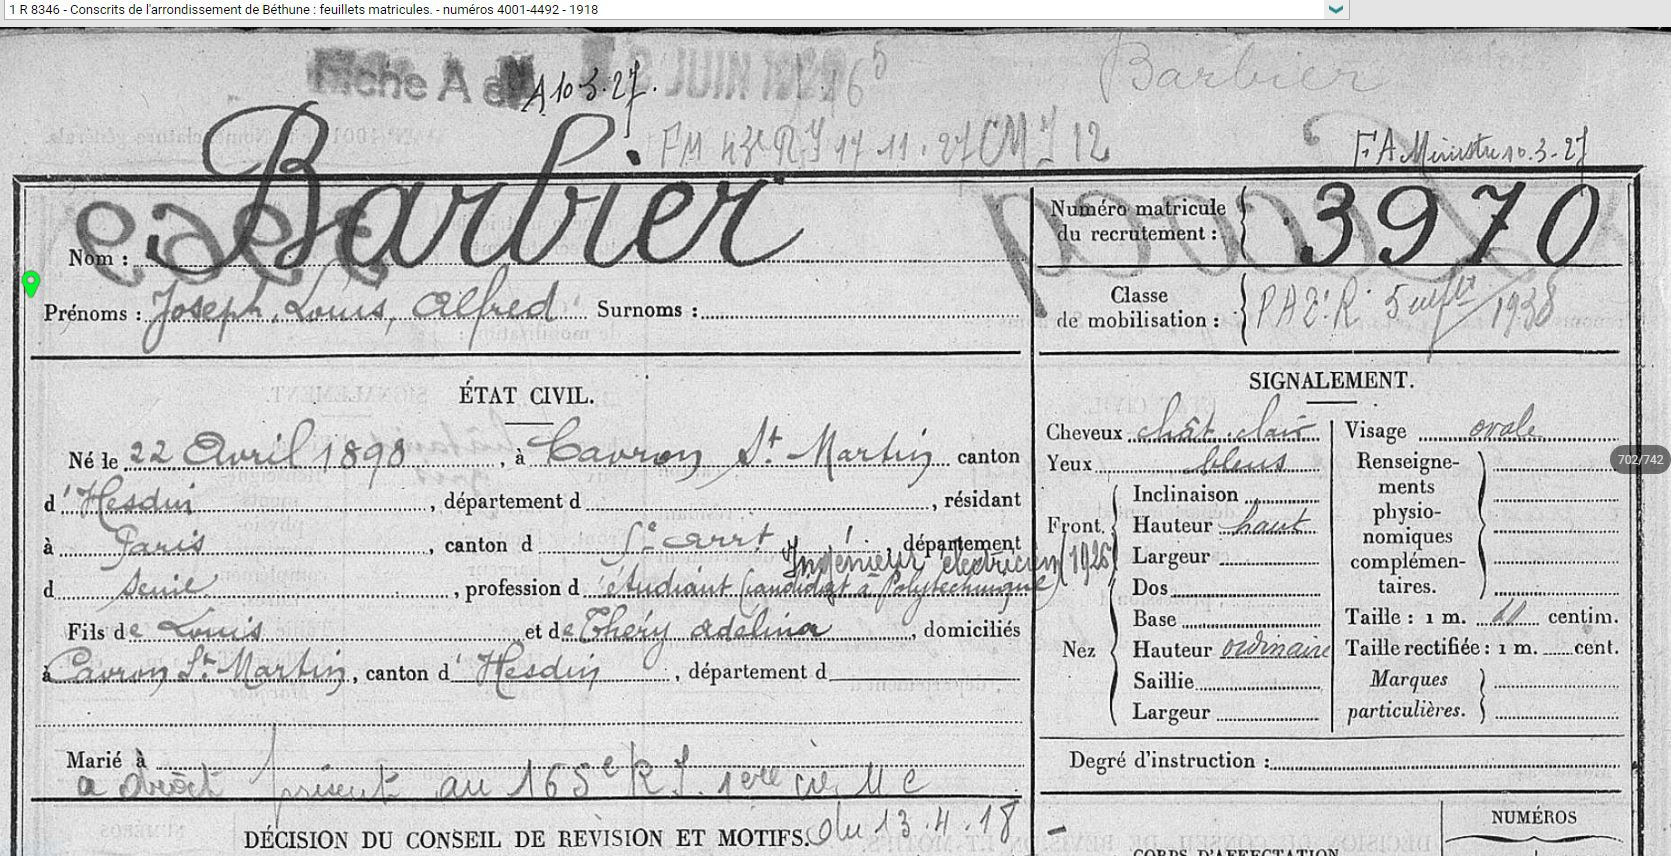 1 R 8346 - Conscrits de l'arrondissement de Béthune : feuillets matricules. - numéros 4001-4492 - 1918
Fiche A JUIN
A 10.3.27. Barbier
FM 43e R.I 17.11.27 CM I 12 F.A. Ministre 10.3-27
Nom : Barbier
Numéro matricule du recrutement : 3970
Prénoms : Joseph, Louis, Alfred Surnoms :
Classe de mobilisation : 1938
ÉTAT CIVIL.
Né le 22 Avril 1898, à Cavron St. Martin canton
d'Hesdin, département d , résidant
à Paris, canton d 5e arrt, département
Ingénieur électricien (1926)
d Seine, profession d étudiant (candidat à Polytechnique)
Fils de Louis et de Théry Adélina, domiciliés
à Cavron St. Martin, canton d'Hesdin, département d
Marié à
a droit présent au 165e R.I. 1ere cie M c
DÉCISION DU CONSEIL DE REVISION ET MOTIFS. du 13.4.18
SIGNALEMENT.
Cheveux chât. clair
Yeux bleus
Front.
Inclinaison
Hauteur haut
Largeur
Nez
Dos
Base
Hauteur ordinaire
Saillie
Largeur
Visage ovale
Renseigne-
ments
physio-
nomiques
complémen-
taires.
Taille : 1 m. centim.
Taille rectifiée : 1 m. cent.
Marques
particulières.
Degré d'instruction :
NUMÉROS
CORPS D'AFFECTATION
702/742